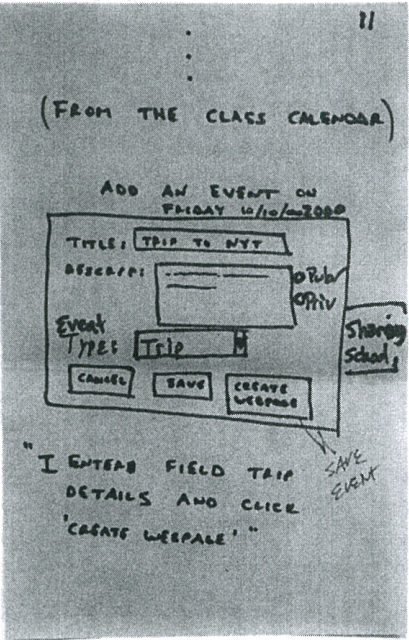 11
(FROM THE CLASS CALENDAR)
ADD AN EVENT ON
FRIDAY 10/10/2000
TITLE: TRIP TO NYT
DESCRIP:
Pub
Priv
Event
Type: Trip
Sharing
School
CANCEL
SAVE
CREATE
WEBPAGE
SAVE
EVENT
"I ENTER FIELD TRIP
DETAILS AND CLICK
'CREATE WEBPAGE'"